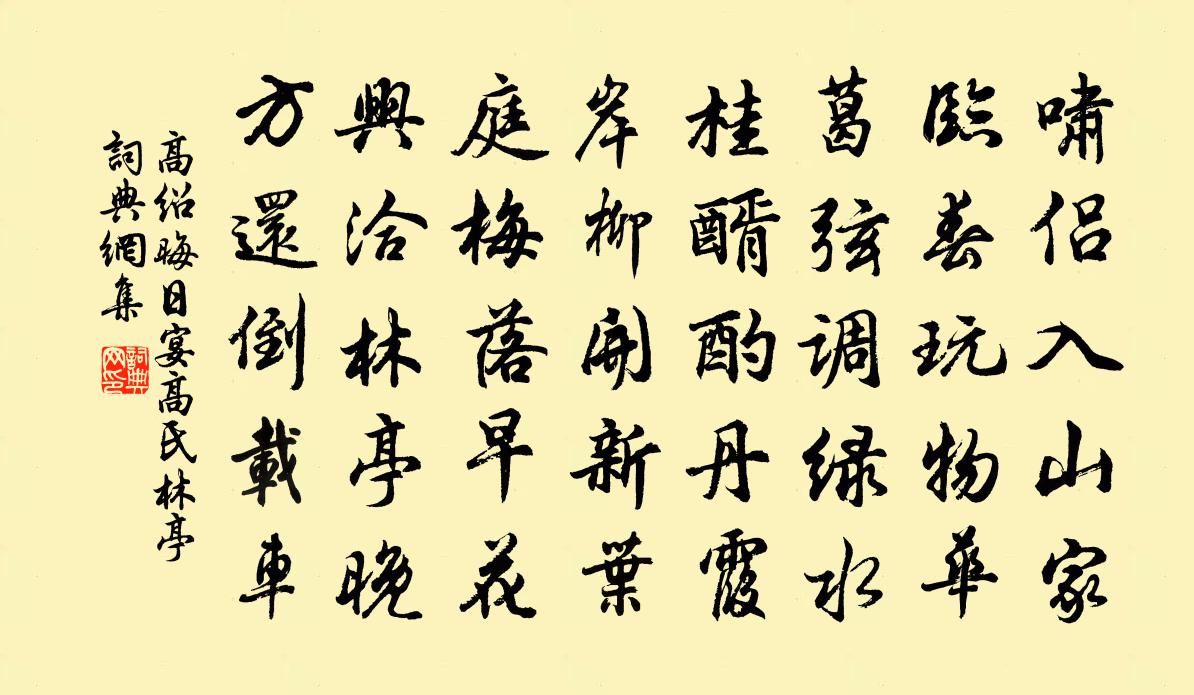 嘯侣入山家
臨春玩物華
葛弦调绿水
桂醑酌丹霞
岸柳開新葉
庭梅落早花
興洽林亭晚
方還倒載車
高绍晦日宴高氏林亭
詞典網集
詞典网印